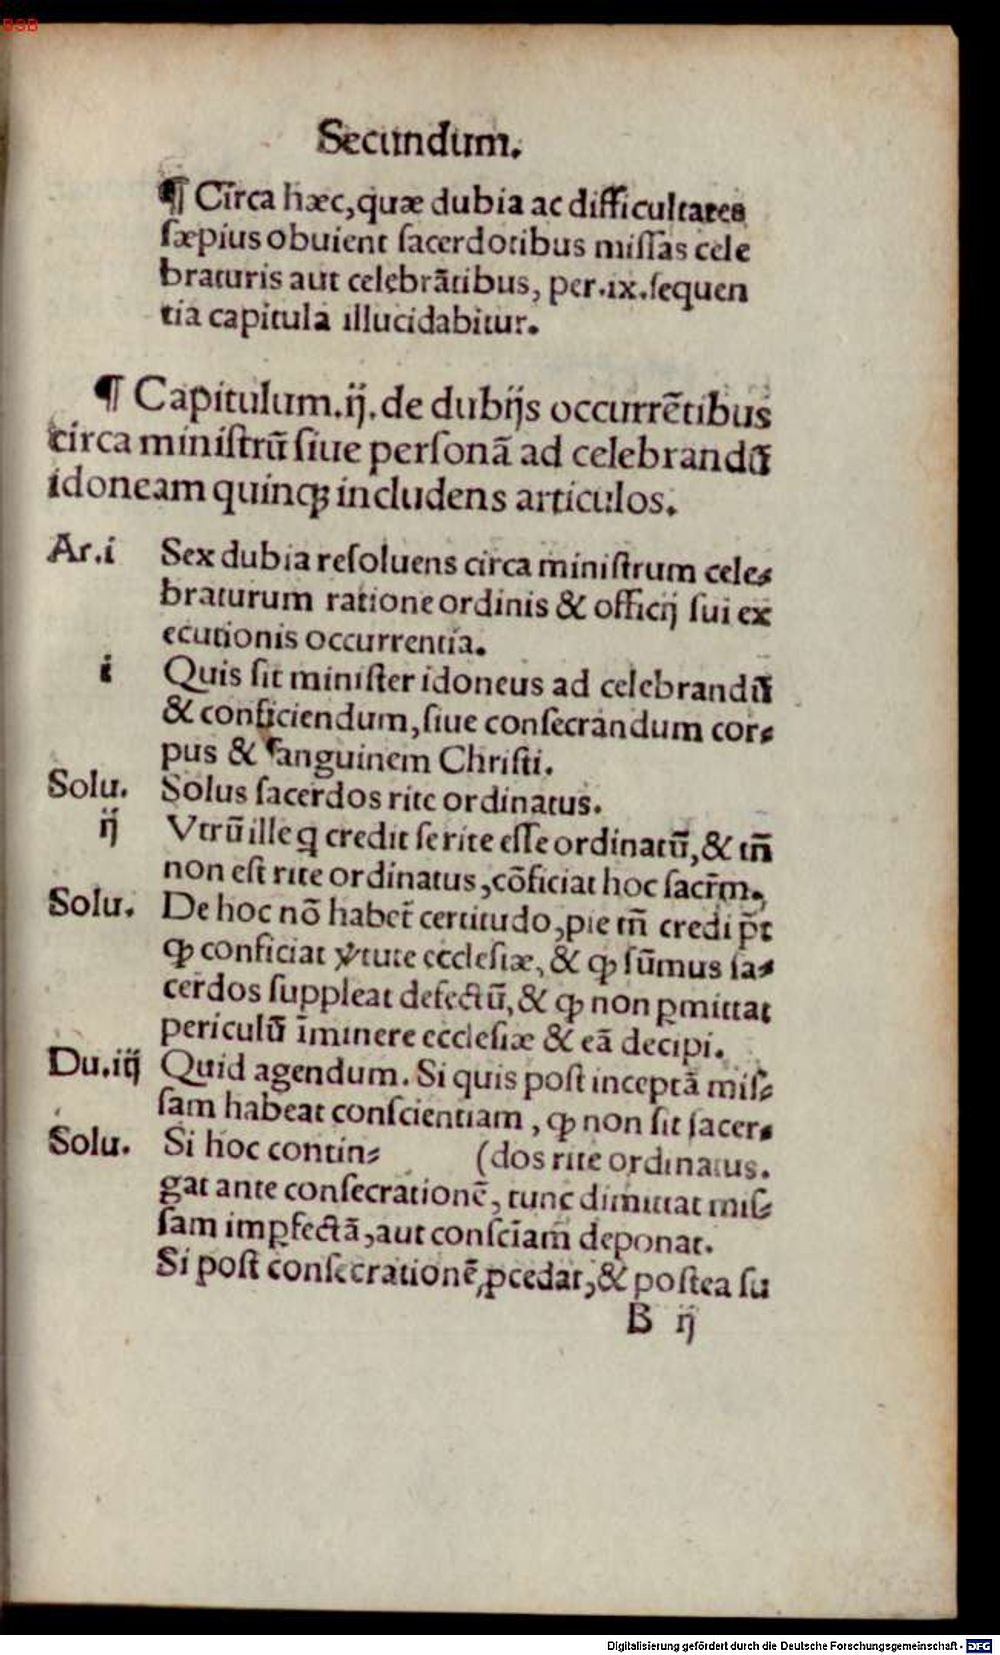 BSB
Secundum.
¶ Circa hæc, quæ dubia ac difficultates
ſæpius obuient ſacerdotibus miſſas cele
braturis aut celebrãtibus, per .ix. ſequen
tia capitula illucidabitur.
¶ Capitulum .ij. de dubijs occurrẽtibus
circa miniſtrũ ſiue perſonã ad celebrandũ
idoneam quinqꝫ includens articulos.
Ar.i Sex dubia reſoluens circa miniſtrum cele⸗
braturum ratione ordinis & officij ſui ex
ecutionis occurrentia.
i Quis ſit miniſter idoneus ad celebrandũ
& conficiendum, ſiue conſecrandum cor⸗
pus & ſanguinem Chriſti.
Solu. Solus ſacerdos rite ordinatus.
ij Vtrũ ille q credit ſe rite eſſe ordinatũ, & tñ
non eſt rite ordinatus, cõficiat hoc ſacr̃m.
Solu. De hoc nõ habet̃ certitudo, pie tñ credi p̃t
ꝙ conficiat ꝟtute eccleſiæ, & ꝙ ſũmus ſa⸗
cerdos ſuppleat defectũ, & ꝙ non ꝑmittat
periculũ ĩminere eccleſiæ & eã decipi.
Du.iij Quid agendum. Si quis poſt inceptã miſ⸗
ſam habeat conſcientiam, ꝙ non ſit ſacer⸗
Solu. Si hoc contin⸗ (dos rite ordinatus.
gat ante conſecrationẽ, tunc dimittat miſ⸗
ſam imꝑfectã, aut conſciam̃ deponat.
Si poſt conſecrationẽ, ꝓcedat, & poſtea ſu
B ij
Digitalisierung gefördert durch die Deutsche Forschungsgemeinschaft - DFG